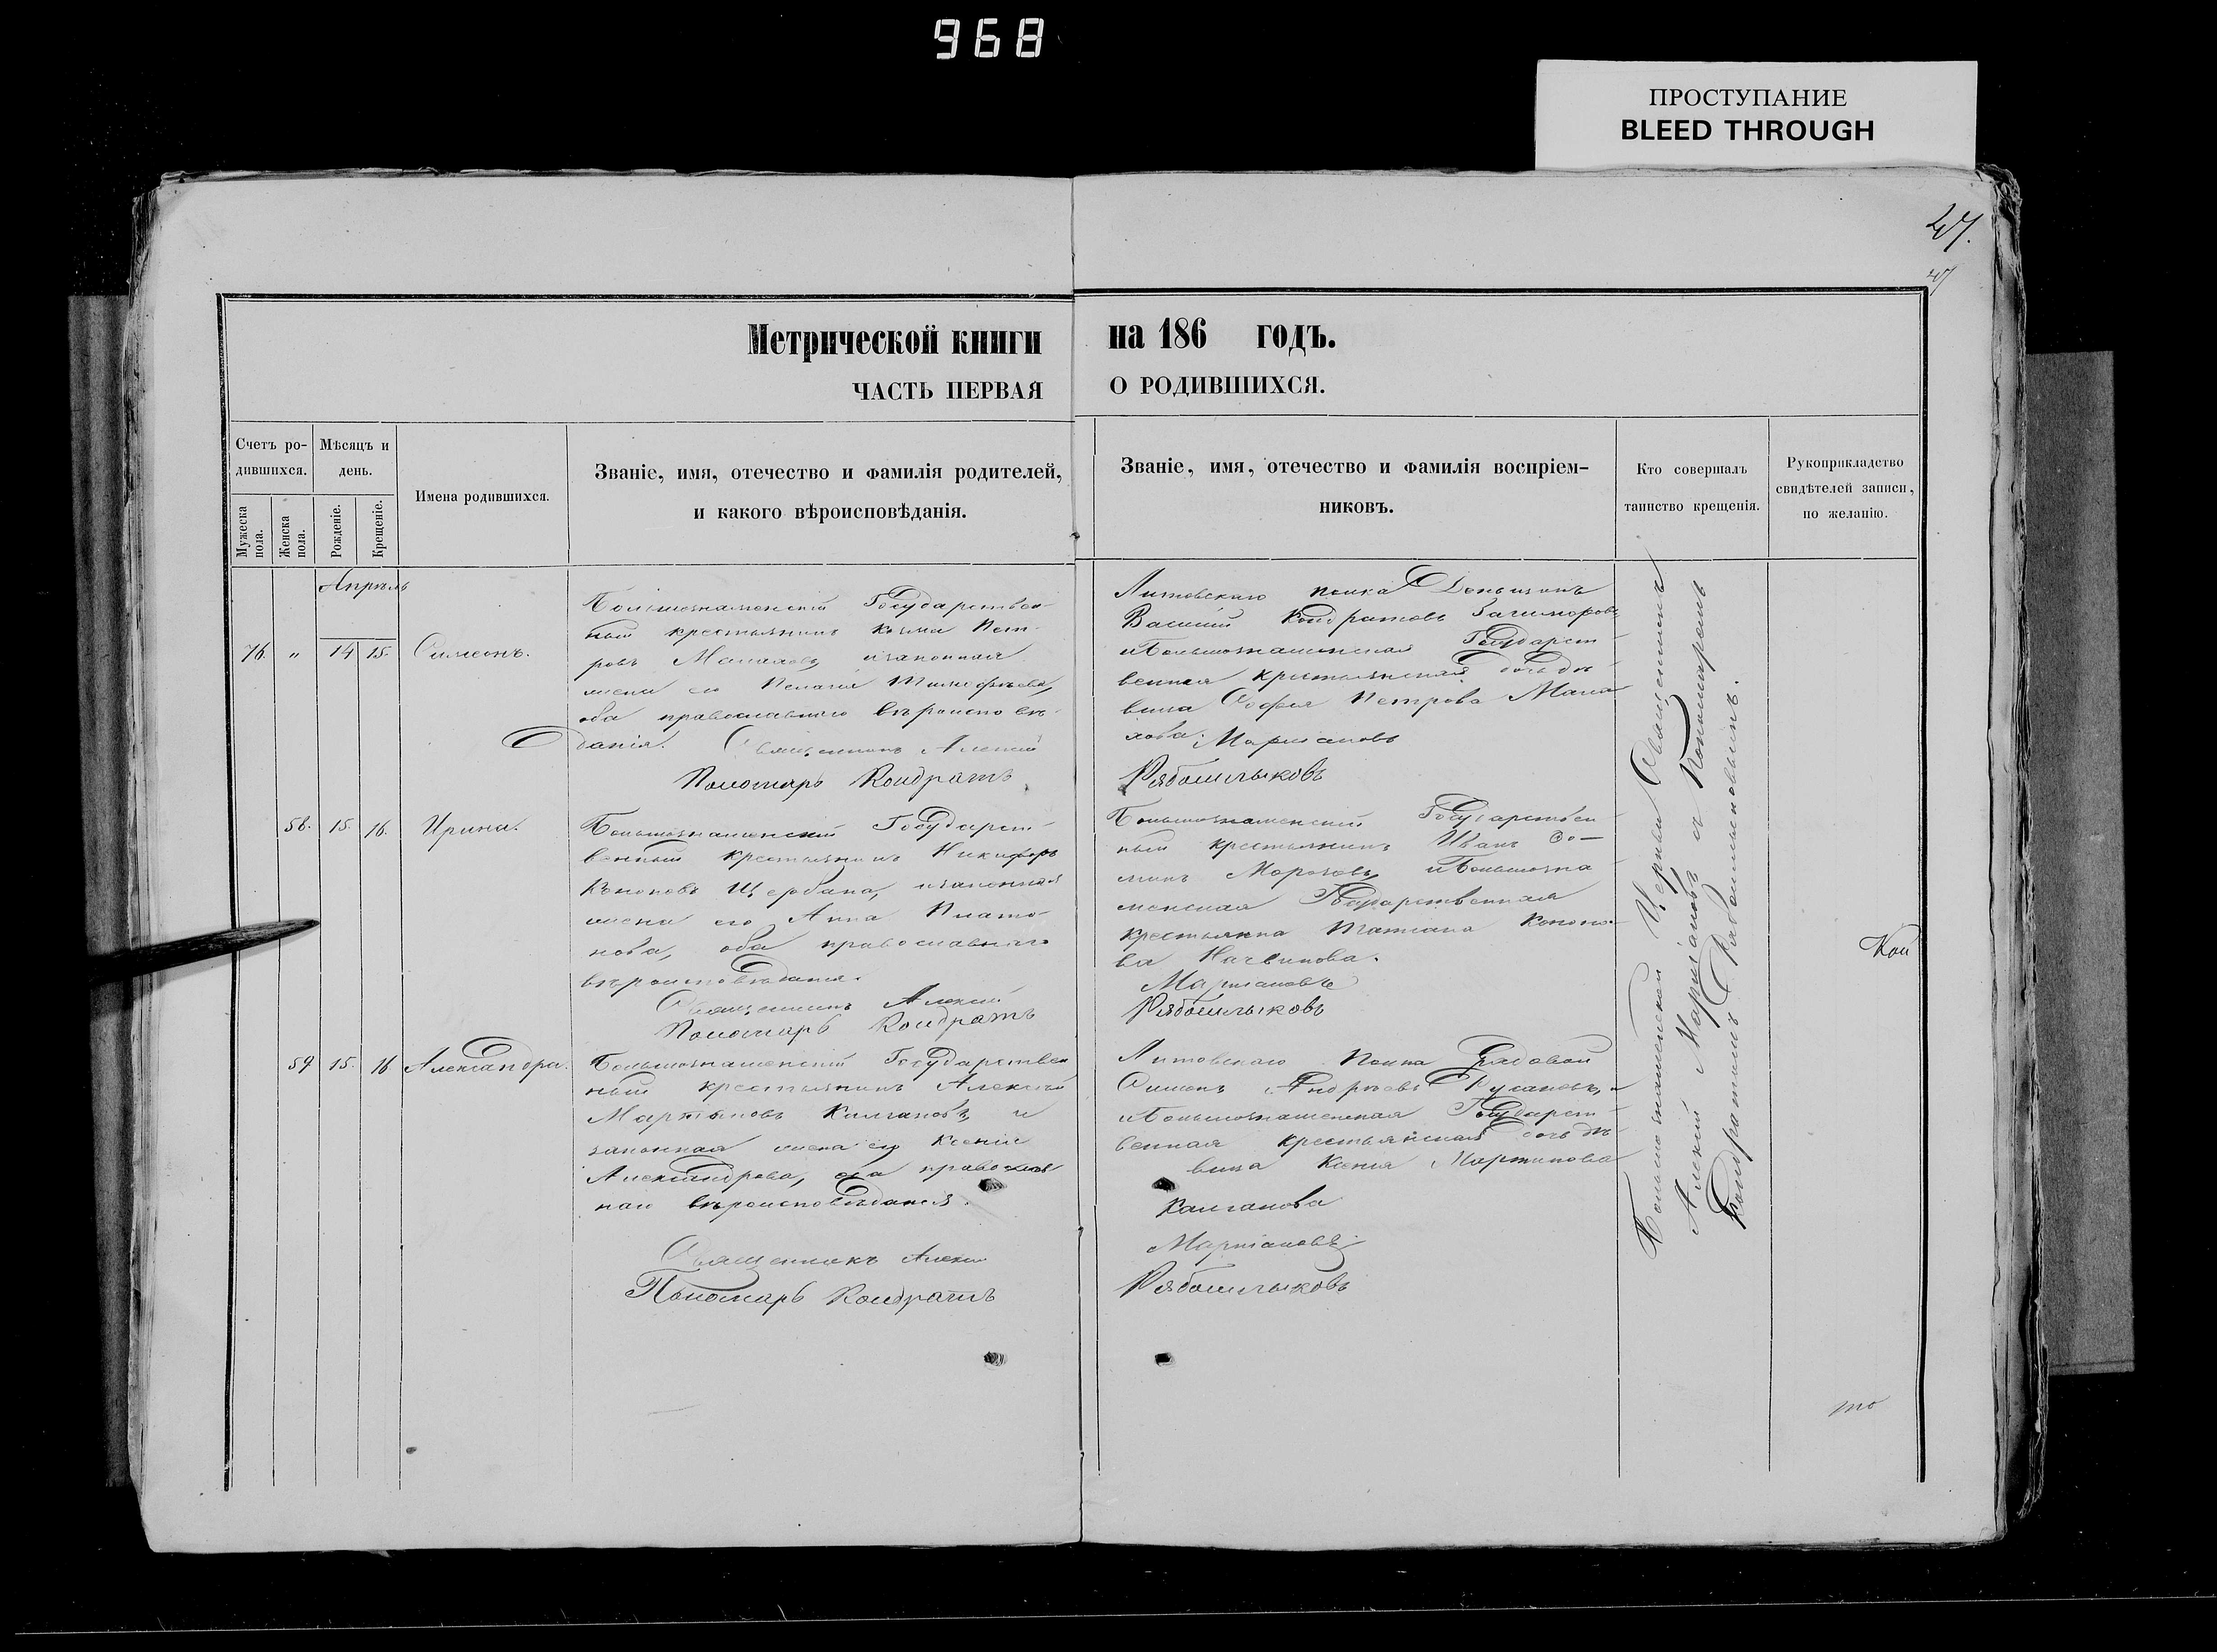 968
ПРОСТУПАНИЕ
BLEED THROUGH
Метрической книги на 186 годъ.
ЧАСТЬ ПЕРВАЯ О РОДИВШИХСЯ.
Счетъ ро-
дившихся.
Мужеска
пола.
Женска
пола.
Мѣсяцъ и
день.
Рожденіе.
Крещеніе.
Имена родившихся.
Званіе, имя, отечество и фамилія родителей,
и какого вѣроисповѣданія.
Званіе, имя, отечество и фамилія воспріем-
никовъ.
Кто совершалъ
таинство крещенія.
Рукоприкладство
свидѣтелей записи,
по желанію.
Апрѣль
76. " 14 15. Симеонъ.
Большознаменскій Государствен-
ный крестьянинъ Козма Пет-
ровъ изаконная
жена его Пелагія
оба православнаго вѣроисповѣ-
данія. Священникъ Алексій
Пономарь Кондратъ
Литовскаго полка Деньщикъ
Василій Кондратовъ
иБольшознаменская Государст-
венная крестьянская дочь дѣ-
вица Софія Петрова
Марціановъ
Рябошлыковъ
58. 15. 16. Ирина.
Большознаменскій Государст-
венный крестьянинъ Никифоръ
Кононовъ Щербана, изаконная
жена его Анна Плато-
нова, оба православнаго
вѣроисповѣданія.
Священникъ Алексій
Пономарь Кондратъ
Большознаменскій Государствен-
ный крестьянинъ Иванъ Зо-
Морозовъ, иБольшозна
менская Государственная
крестьянка Татіана Кононо-
ва
Марціановъ
Рябошлыковъ
59 15. 16 Александра.
Большознаменскій Государствен
ный крестьянинъ Алексѣй
Мартыновъ Калгановъ, и
законная жена его Ксенія
Александрова, оба православ
наго вѣроисповѣданія.
Священникъ Алексій
Пономарь Кондратъ
Литовскаго Полка Рядовой
Симонъ Андрѣевъ
иБольшознаменская Государст-
венная крестьянская дочь дѣ-
вица Ксенія Мартинова
Калганова
Марціановъ
Рябошлыковъ
Большознаменской Церкви Священникъ
Алексій Марціановъ съ Пономаремъ
Кондратомъ Рабошлыковымъ.
Кой